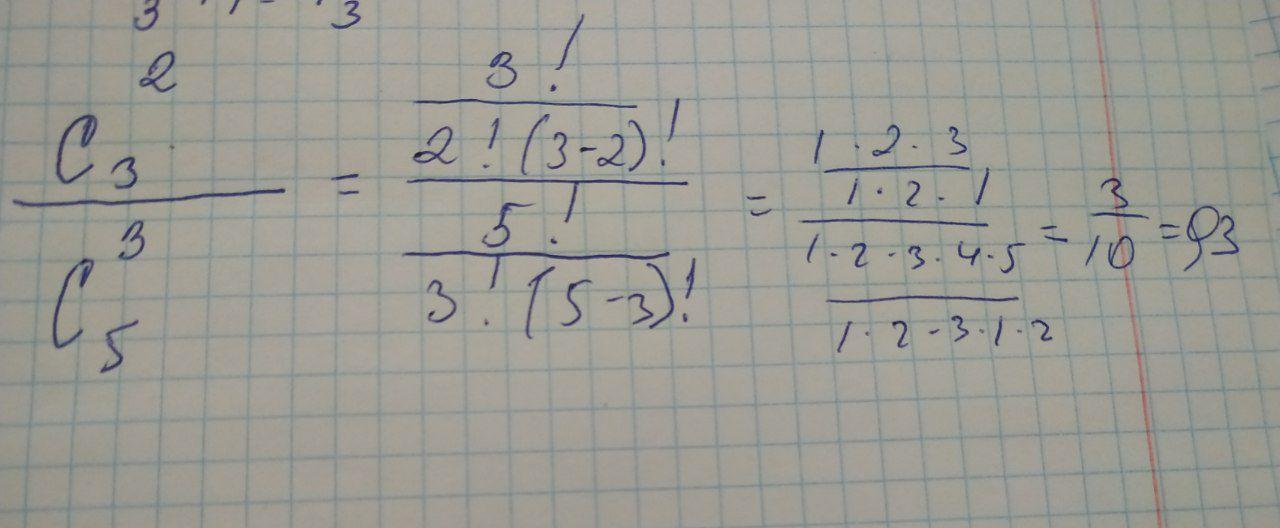 C₃² / C₅³ = (3! / (2!(3-2)!)) / (5! / (3!(5-3)!)) = ((1·2·3) / (1·2·1)) / ((1·2·3·4·5) / (1·2·3·1·2)) = 3/10 = 0,3